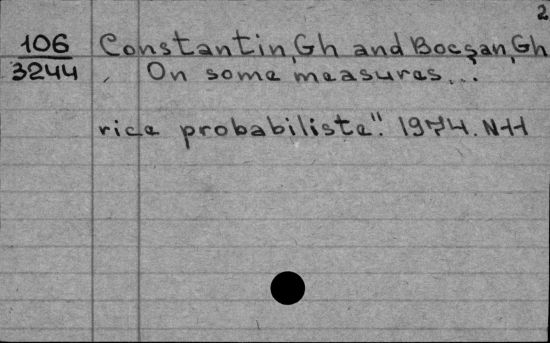 2
106 Constantin, Gh and Bocşan, Gh
3244 On some measures...
rice probabiliste". 1974. N-11